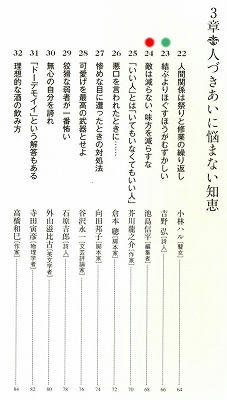 3章 人づきあいに悩まない知恵
22 人間関係は祭りと修業の繰り返し 小林ハル[瞽女] 64
23 結ぶよりほぐすほうがむずかしい 吉野 弘[詩人] 66
24 敵は減らない、味方を減らすな 池島信平[編集者] 68
25 「いい人」とは「いてもいなくてもいい人」 芥川龍之介[作家] 70
26 悪口を言われたときに…… 倉本 聰[脚本家] 72
27 惨めな目に遭ったときの対処法 向田邦子[脚本家] 74
28 可愛げを最高の武器とせよ 谷沢永一[文芸評論家] 76
29 狡猾な弱者が一番怖い 石原吉郎[詩人] 78
30 無心の自分を誇れ 外山滋比古[英文学者] 80
31 「ドーデモイイ」という解答もある 寺田寅彦[物理学者] 82
32 理想的な酒の飲み方 高橋和巳[作家] 84